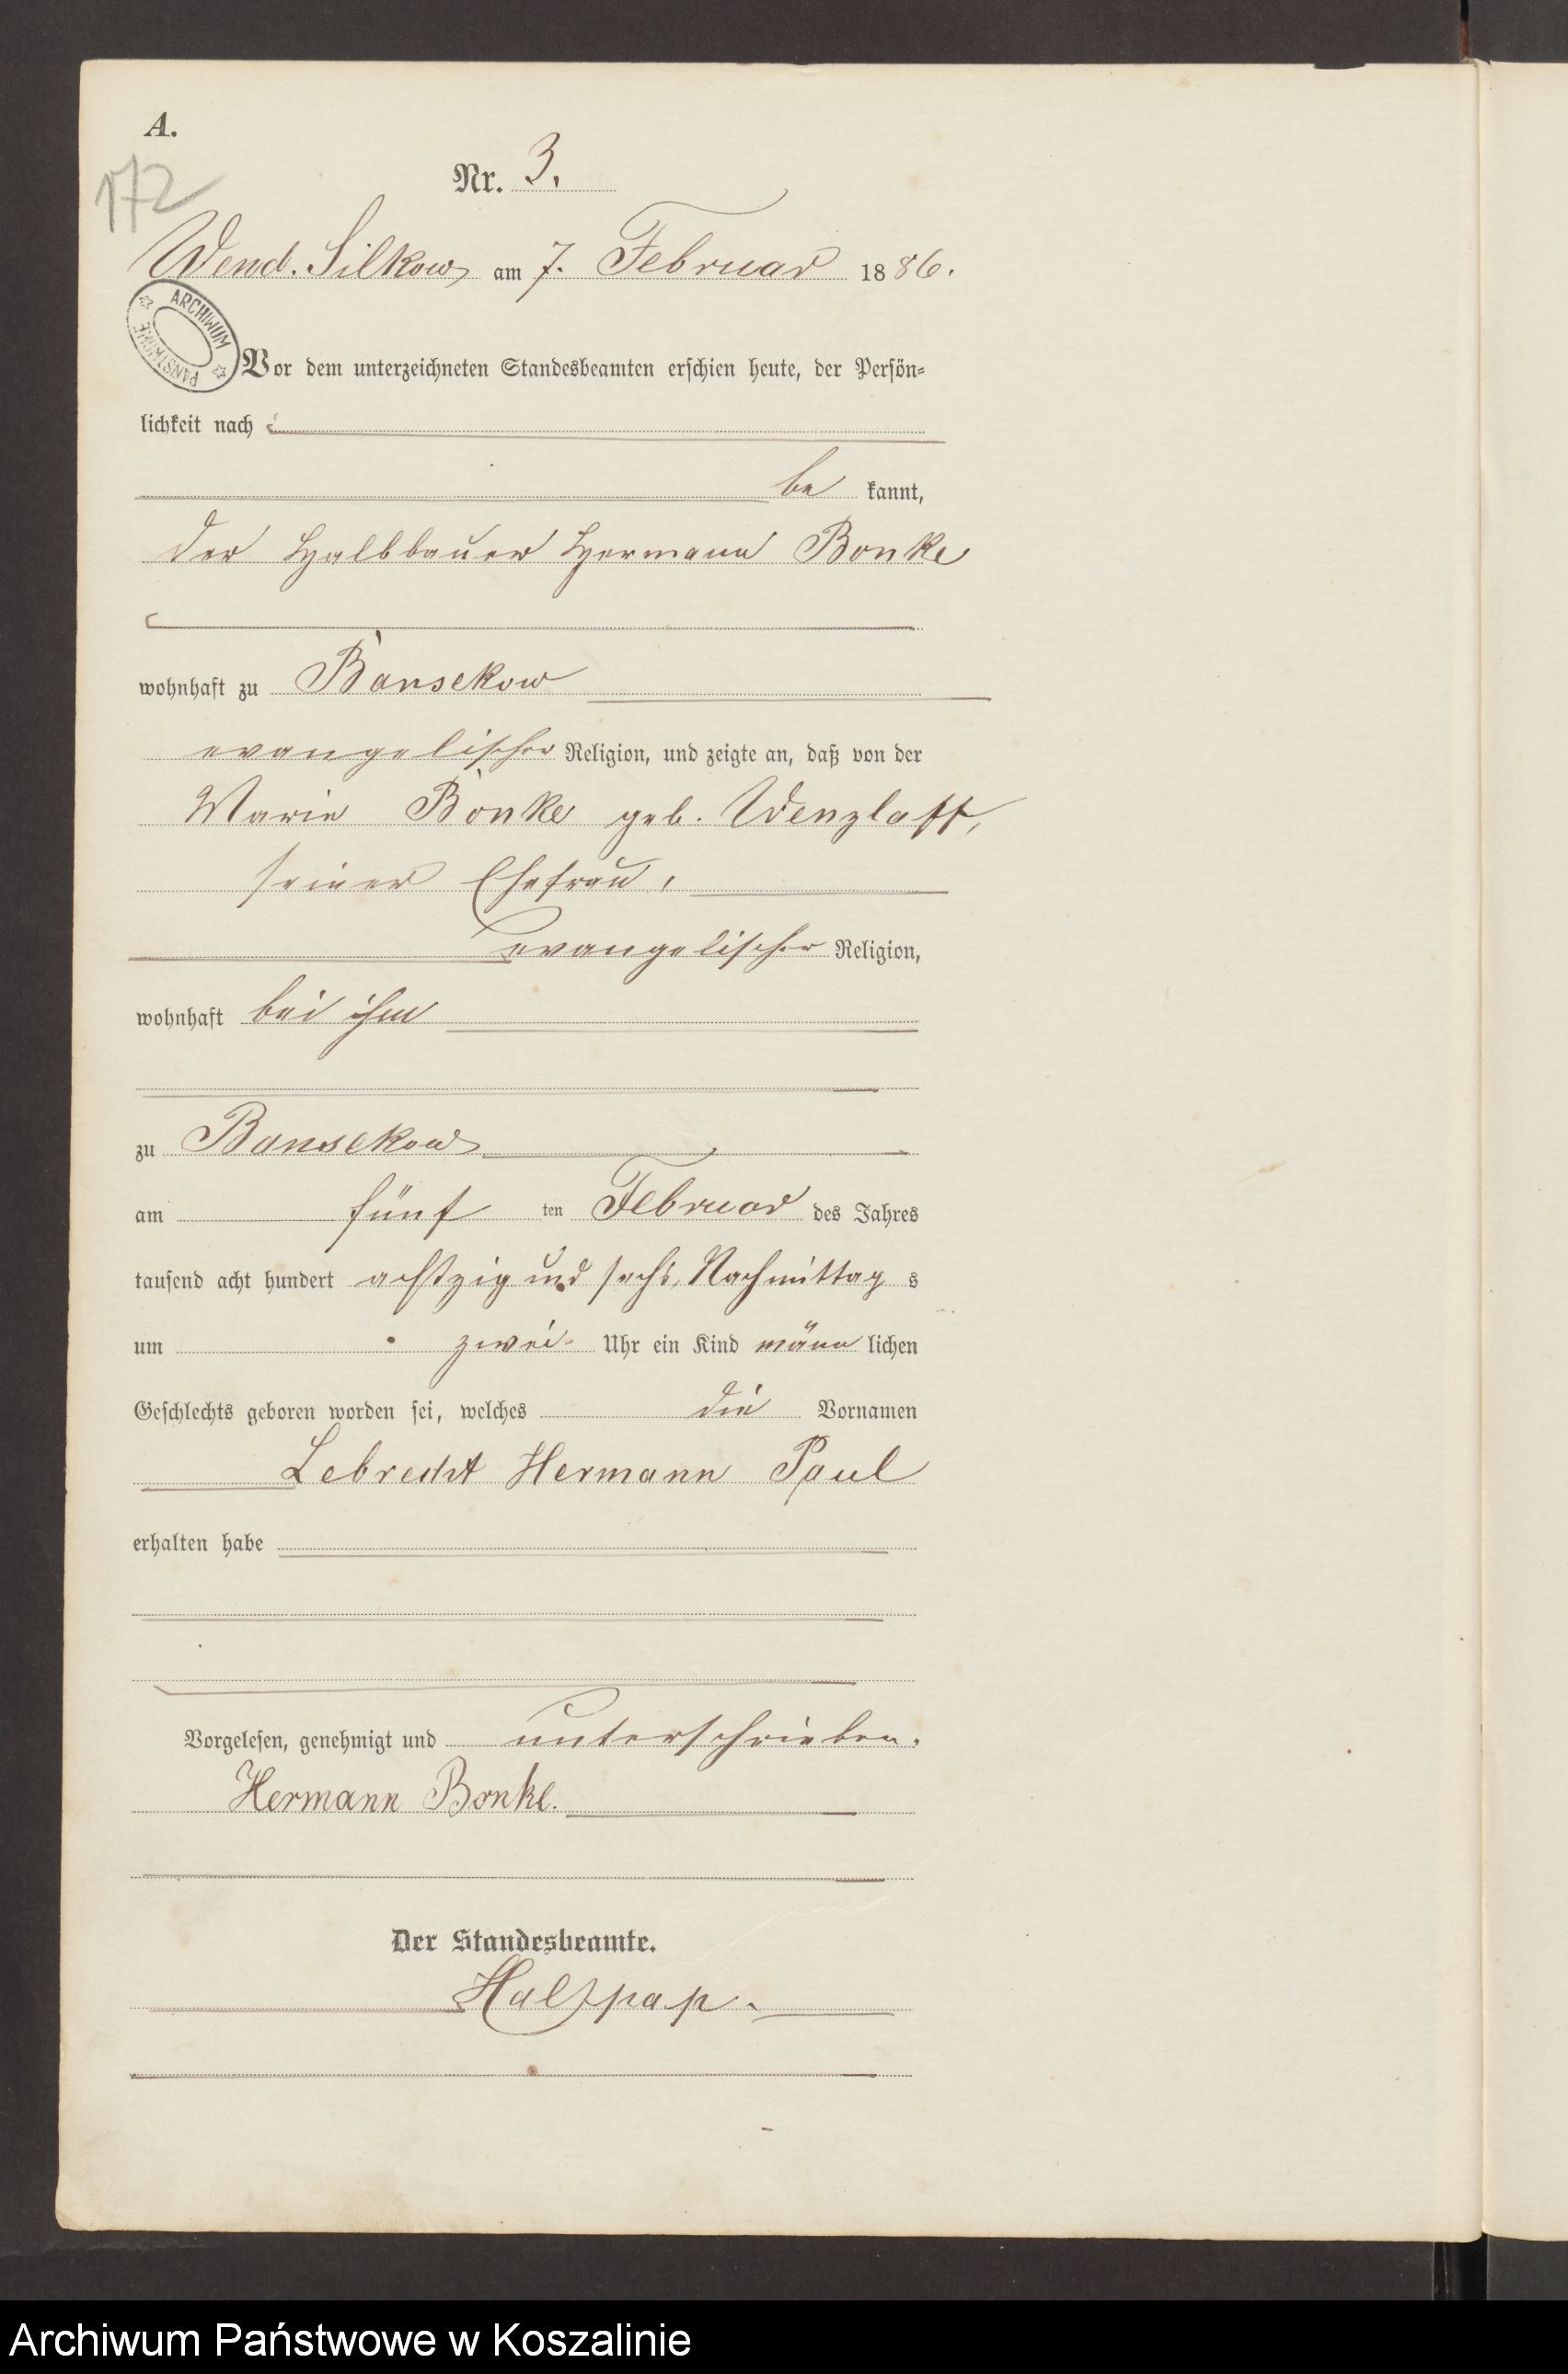 A.
172
Nr. 3.
Wend. Silkow am 7. Februar 1886.
ARCHIWUM PAŃSTWOWE
Vor dem unterzeichneten Standesbeamten erschien heute, der Persön-
lichkeit nach
be kannt,
der Halbbauer Hermann Bonke
wohnhaft zu Bansekow
evangelischer Religion, und zeigte an, daß von der
Marie Bonke geb. Wenzlaff,
seiner Ehefrau,
evangelischer Religion,
wohnhaft bei ihm
zu Bansekow
am fünf ten Februar des Jahres
tausend acht hundert achtzig und sechs, Nachmittag s
um zwei Uhr ein Kind männ lichen
Geschlechts geboren worden sei, welches die Vornamen
Lebrecht Hermann Paul
erhalten habe
Vorgelesen, genehmigt und unterschrieben.
Hermann Bonke.
Der Standesbeamte.
Archiwum Państwowe w Koszalinie